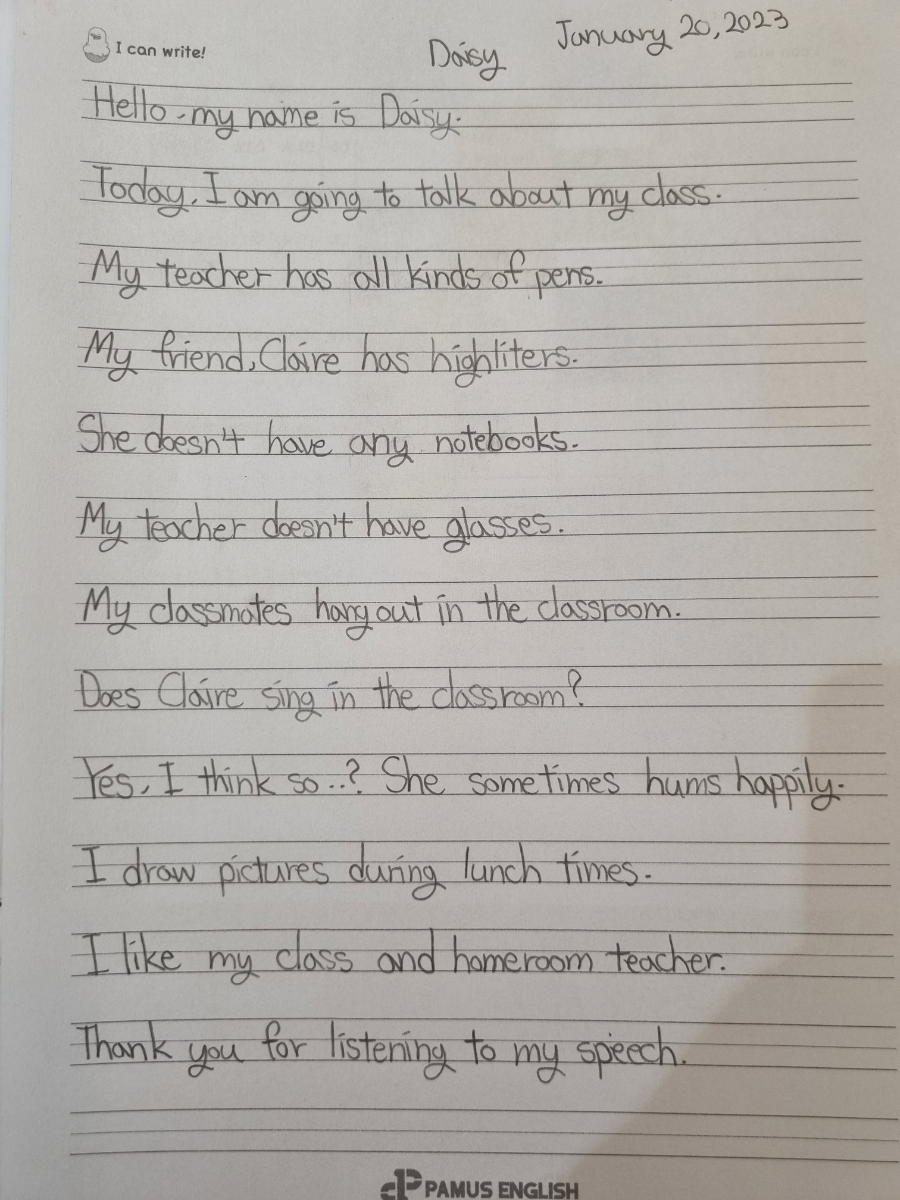 I can write!
Daisy
January 20, 2023
Hello, my name is Daisy.
Today, I am going to talk about my class.
My teacher has all kinds of pens.
My friend, Claire has highliters.
She doesn't have any notebooks.
My teacher doesn't have glasses.
My classmates hang out in the classroom.
Does Claire sing in the classroom?
Yes, I think so..? She sometimes hums happily.
I draw pictures during lunch times.
I like my class and homeroom teacher.
Thank you for listening to my speech.
PAMUS ENGLISH